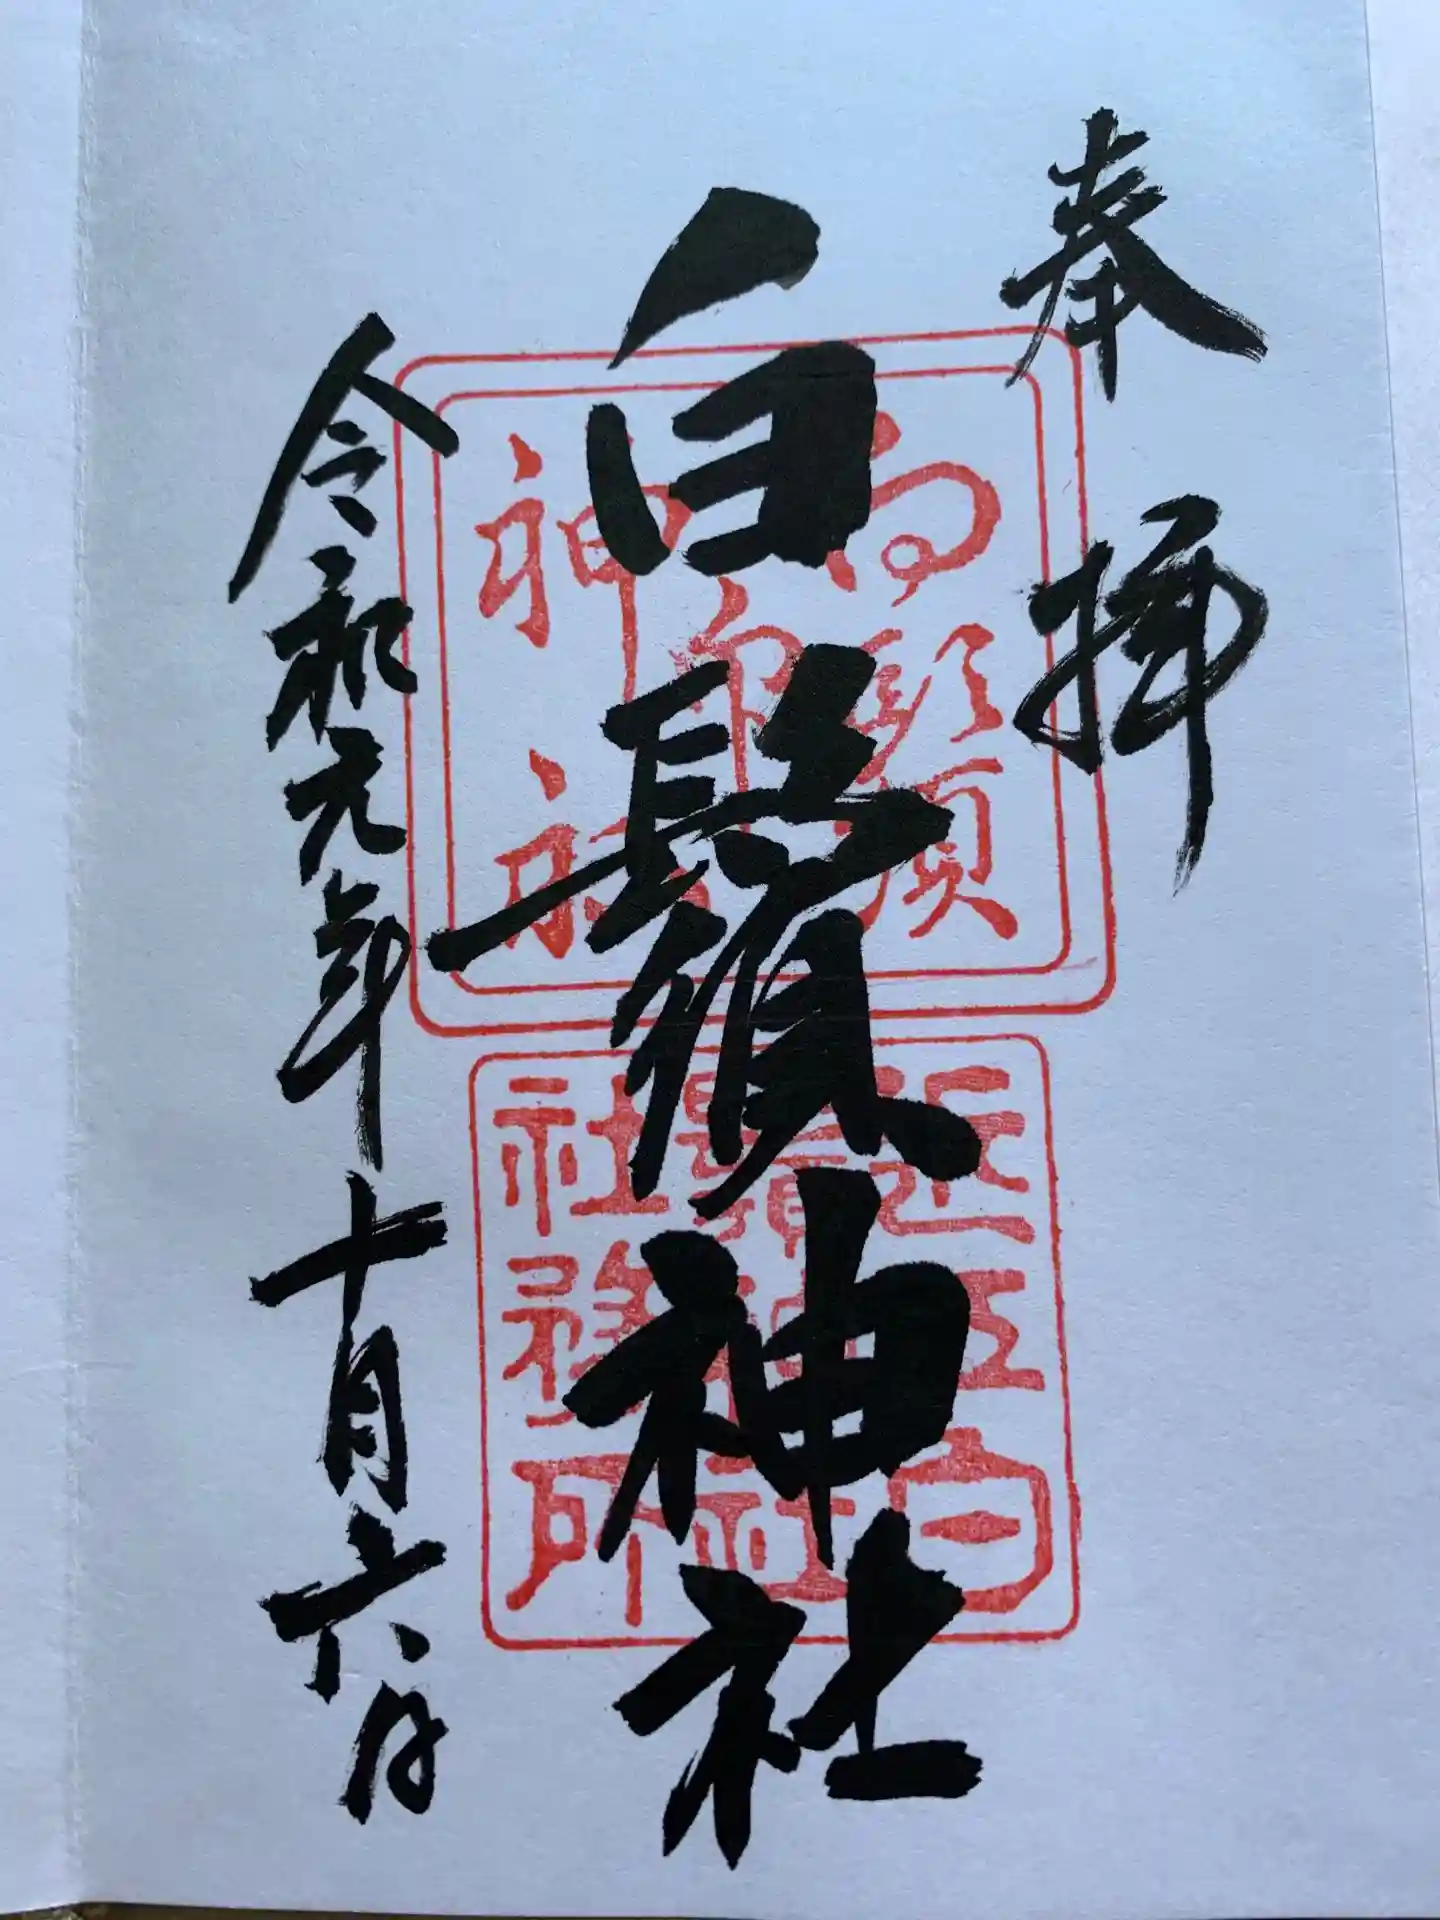 奉拝
白鬚神社
令和元年十月六日
神社
近江白
鬚神社
社務所